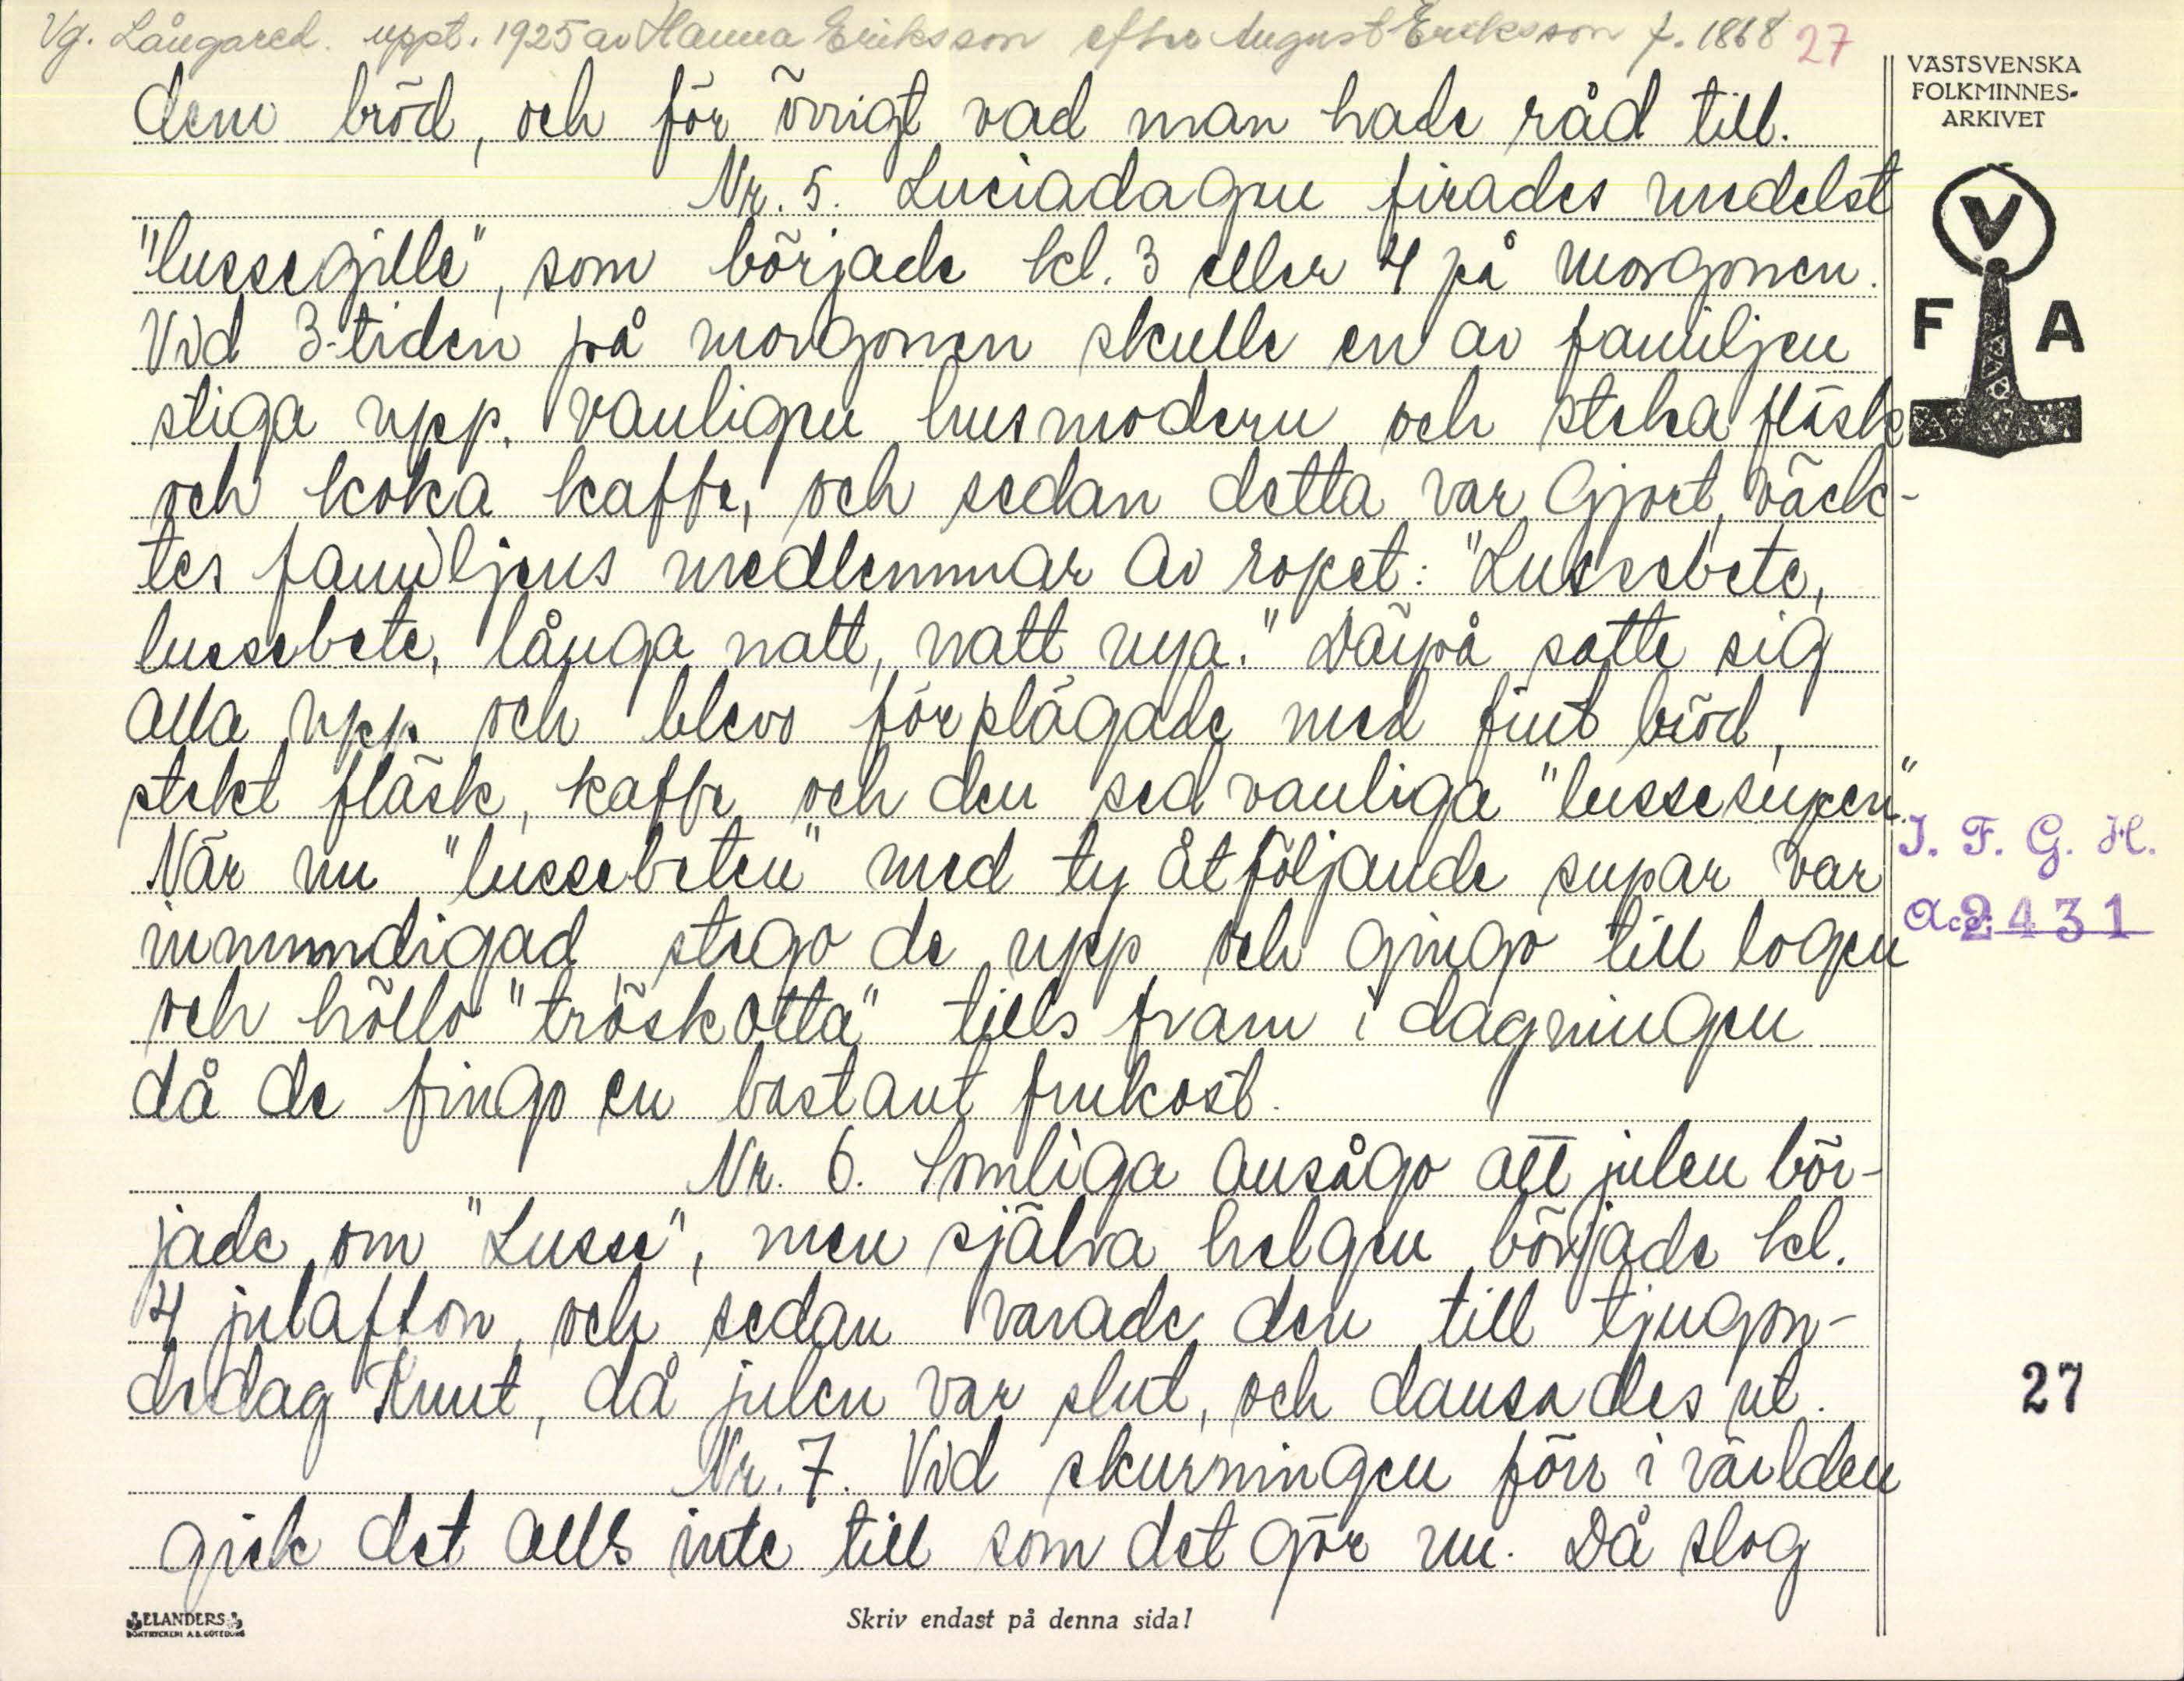 Vg. Långared. uppt. 1925 av Hanna Eriksson efter August Eriksson f. 1868 27
VÄSTSVENSKA
FOLKMINNES-
ARKIVET
V
F A
dem bröd, och för övrigt vad man hade råd till.
Nr. 5. Luciadagen firades medelst
"lussegille", som började kl. 3 eller 4 på morgonen.
Vid 3-tiden på morgonen skulle en av familjen
stiga upp, vanligen husmodern, och steka fläsk
och koka kaffe, och sedan detta var gjort, väck-
tes familjens medlemmar av ropet: "Lussebete,
lussebete, långa natt, natt nya." Därpå satte sig
alla upp och blevo förplägade med fint bröd,
stekt fläsk, kaffe och den sedvanliga "lussesupen".
När nu "lussebeten" med ty åtföljande supar var
inmundigad, stego de upp och gingo till logen
och höllo "tröskotta" tills fram i dagningen
då de fingo en bastant frukost.
Nr. 6. Somliga ansågo att julen bör-
jade om "Lusse", men själva helgen började kl.
4 julafton, och sedan varade den till tjugon-
dedag Knut, då julen var slut, och dansades ut.
Nr. 7. Vid skurningen förr i världen
gick det alls inte till som det gör nu. Då slog
I. F. G. H.
Acc. 2431
27
ELANDERS
BOKTRYCKERI A.B. GÖTEBORG
Skriv endast på denna sida!